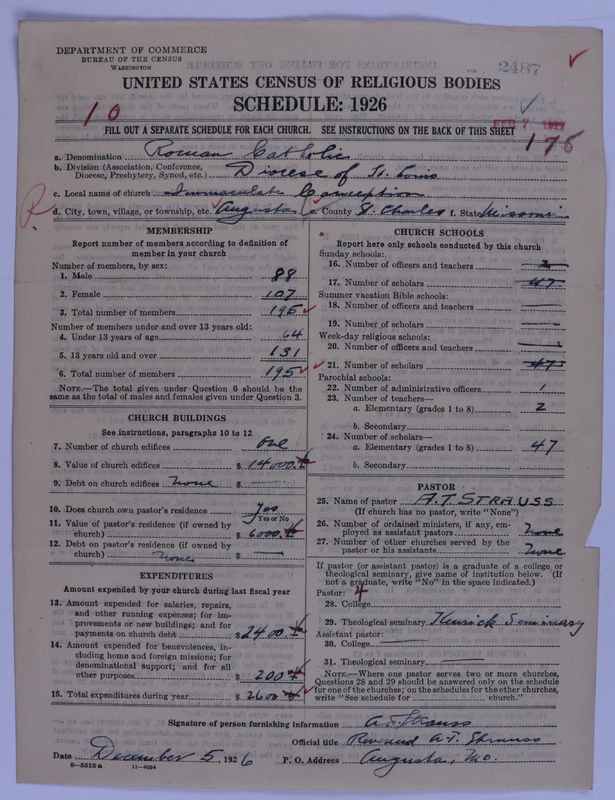 DEPARTMENT OF COMMERCE
BUREAU OF THE CENSUS
WASHINGTON
2487
UNITED STATES CENSUS OF RELIGIOUS BODIES
SCHEDULE: 1926
10
FEB 7 1927
FILL OUT A SEPARATE SCHEDULE FOR EACH CHURCH. SEE INSTRUCTIONS ON THE BACK OF THIS SHEET
178
a. Denomination Roman Catholic
b. Division (Association, Conference, Diocese of St. Louis
Diocese, Presbytery, Synod, etc.)
c. Local name of church Immaculate Conception
R
d. City, town, village, or township, etc. Augusta e. County St. Charles f. State Missouri
MEMBERSHIP
Report number of members according to definition of
member in your church
Number of members, by sex:
1. Male 88
2. Female 107
3. Total number of members 195
Number of members under and over 13 years old:
4. Under 13 years of age 64
5. 13 years old and over 131
6. Total number of members 195
NOTE.—The total given under Question 6 should be
same as the total of males and females given under Question 3.
CHURCH BUILDINGS
See instructions, paragraphs 10 to 12
7. Number of church edifices one
8. Value of church edifices $ 14000.
9. Debt on church edifices none $
10. Does church own pastor's residence yes
Yes or No
11. Value of pastor's residence (if owned by
church) $ 6000.
12. Debt on pastor's residence (if owned by
church) none $
EXPENDITURES
Amount expended by your church during last fiscal year
13. Amount expended for salaries, repairs,
and other running expenses; for im-
provements or new buildings; and for
payments on church debt $ 2400
14. Amount expended for benevolences, in-
cluding home and foreign missions; for
denominational support; and for all
other purposes $ 200
15. Total expenditures during year $ 2600
CHURCH SCHOOLS
Report here only schools conducted by this church
Sunday schools:
16. Number of officers and teachers 2
17. Number of scholars 47
Summer vacation Bible schools:
18. Number of officers and teachers
19. Number of scholars
Week-day religious schools:
20. Number of officers and teachers
21. Number of scholars 47
Parochial schools:
22. Number of administrative officers 1
23. Number of teachers—
a. Elementary (grades 1 to 8) 2
b. Secondary
24. Number of scholars—
a. Elementary (grades 1 to 8) 47
b. Secondary
PASTOR
25. Name of pastor A.T. STRAUSS
(If church has no pastor, write "None")
26. Number of ordained ministers, if any, em-
ployed as assistant pastors none
27. Number of other churches served by the
pastor or his assistants none
If pastor (or assistant pastor) is a graduate of a college or
theological seminary, give name of institution below. (If
not a graduate, write "No" in the space indicated.)
Pastor: 4
28. College
29. Theological seminary Kenrick Seminary
Assistant pastor:
30. College
31. Theological seminary
NOTE.—Where one pastor serves two or more churches,
Questions 28 and 29 should be answered only on the schedule
for one of the churches; on the schedules for the other churches,
write "See schedule for church."
Signature of person furnishing information A.T. Strauss
Official title Reverend A.T. Strauss
Date December 5, 1926 P. O. Address Augusta, Mo.
8—5518a 11—9084